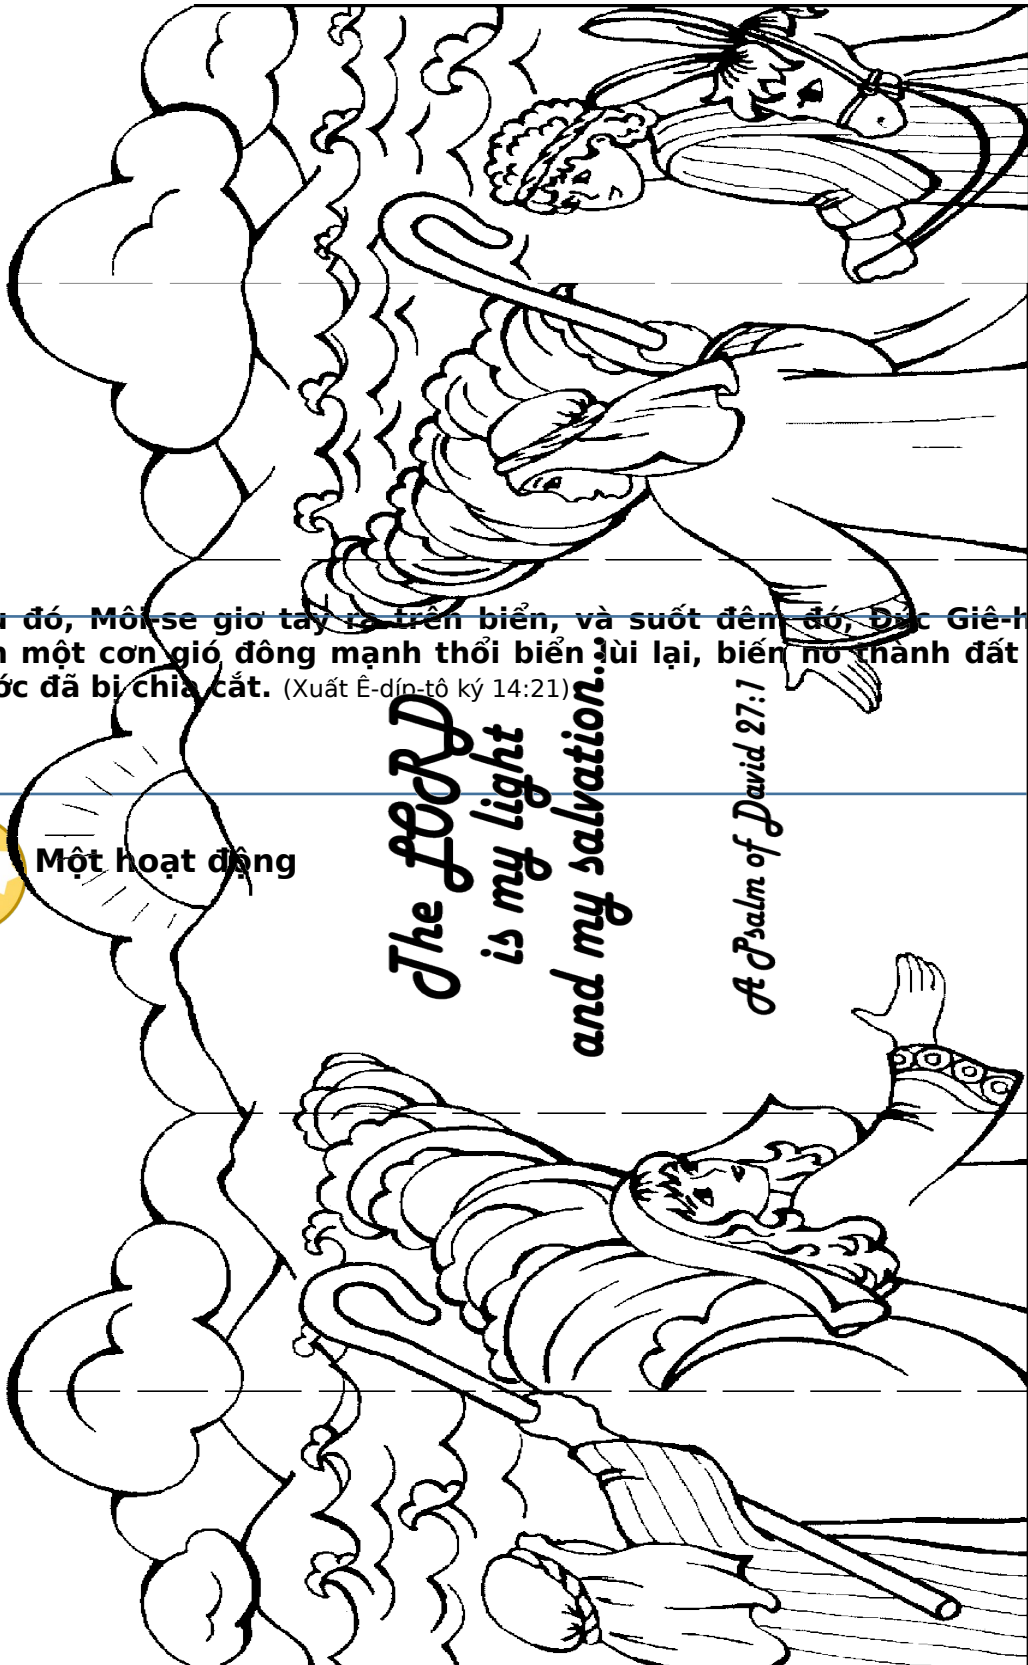 đó, Môi-se giơ tay ra trên biển, và suốt đêm đó, Đức Giê-h
một cơn gió đông mạnh thổi biển lùi lại, biến nó thành đất
đã bị chia cắt. (Xuất Ê-díp-tô ký 14:21)
Một hoạt động
The LORD
is my light
and my salvation...
A Psalm of David 27:1